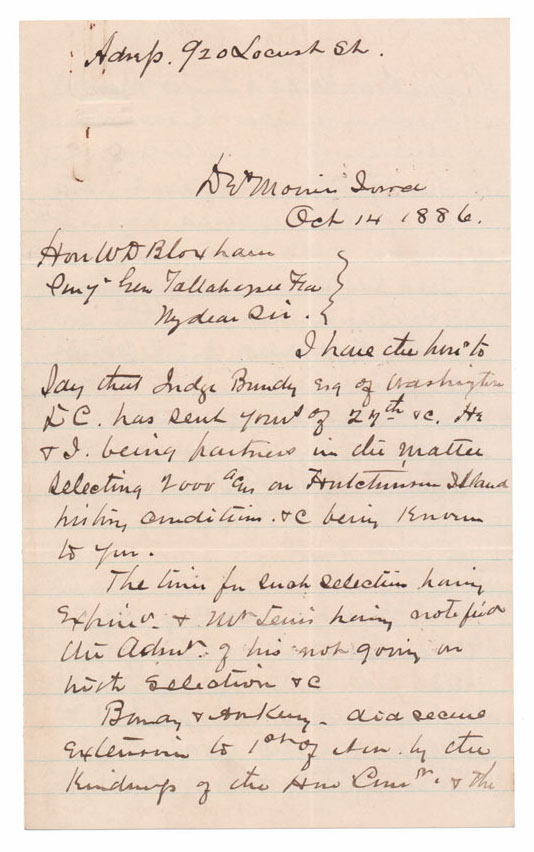 Address. 920 Locust St.
Des Moines Iowa
Oct 14 1886.
Hon W D Bloxham
Gen Tallahassee Fla
My dear Sir.
I have the honr to
Say that Judge Bundy Esq of Washington
D C. has sent yours of 27th &c. He
& I. being partners in the matter
Selecting 2000 acs on Hutchinson Island
history condition. &c being Known
to you.
The time for such selection having
Expired. & Mr Lewis having notified
the of his not going on
with Selection &c
Bundy & did secure
Extension to 1st of Nov. by the
Kindness of the Hon Comr. & the